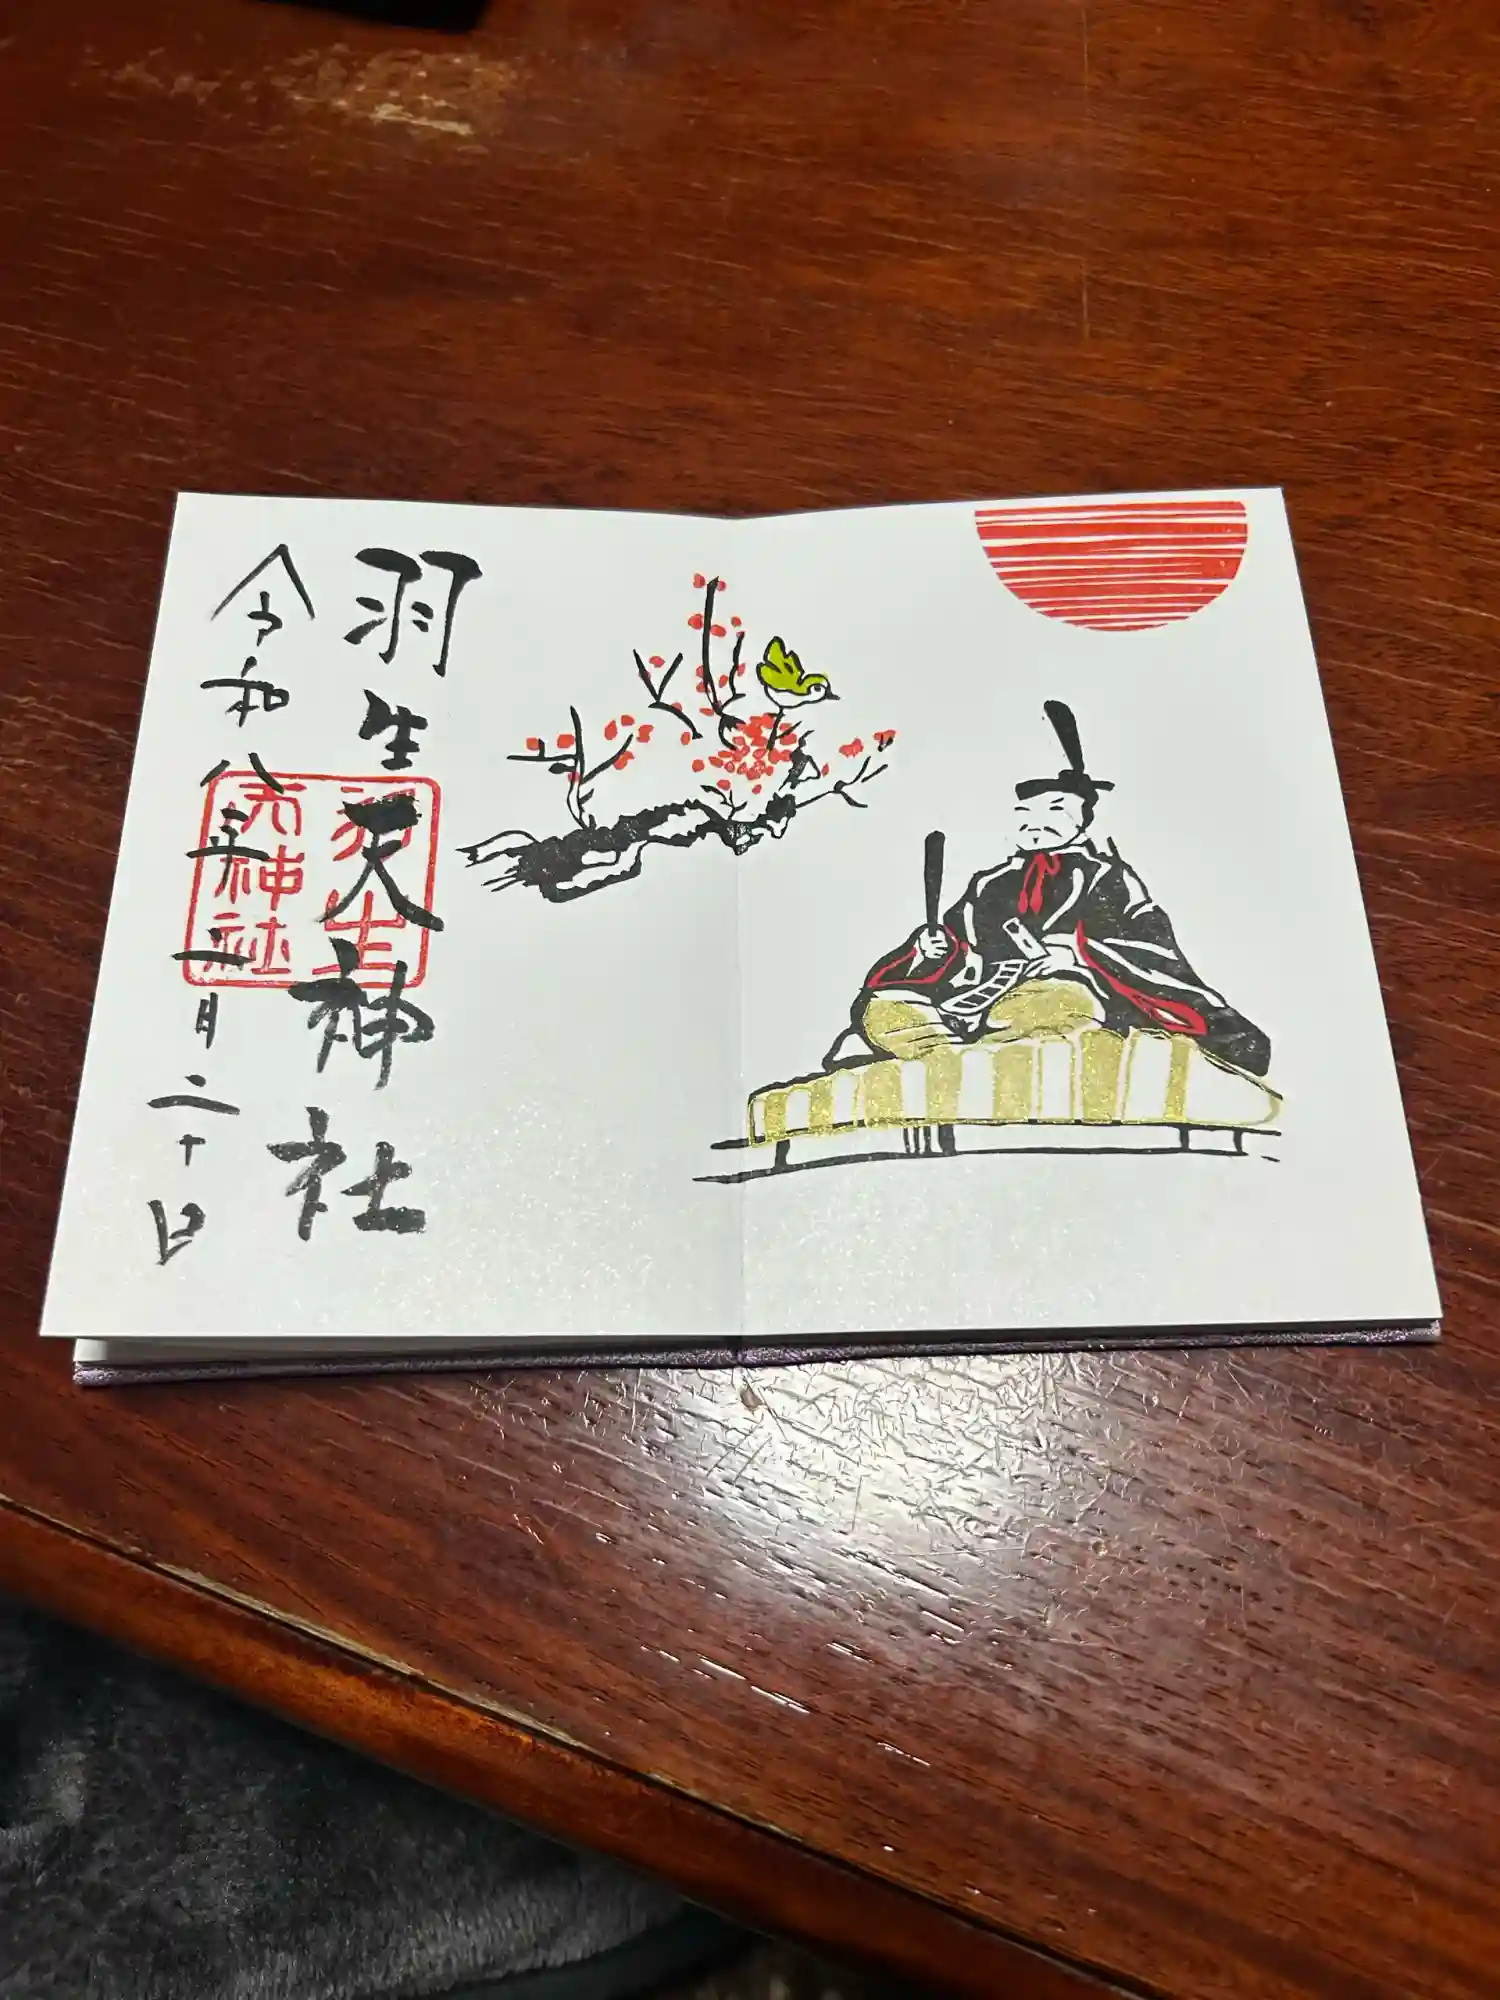 羽生天神社
令和八年二月二十日
羽生
天神社